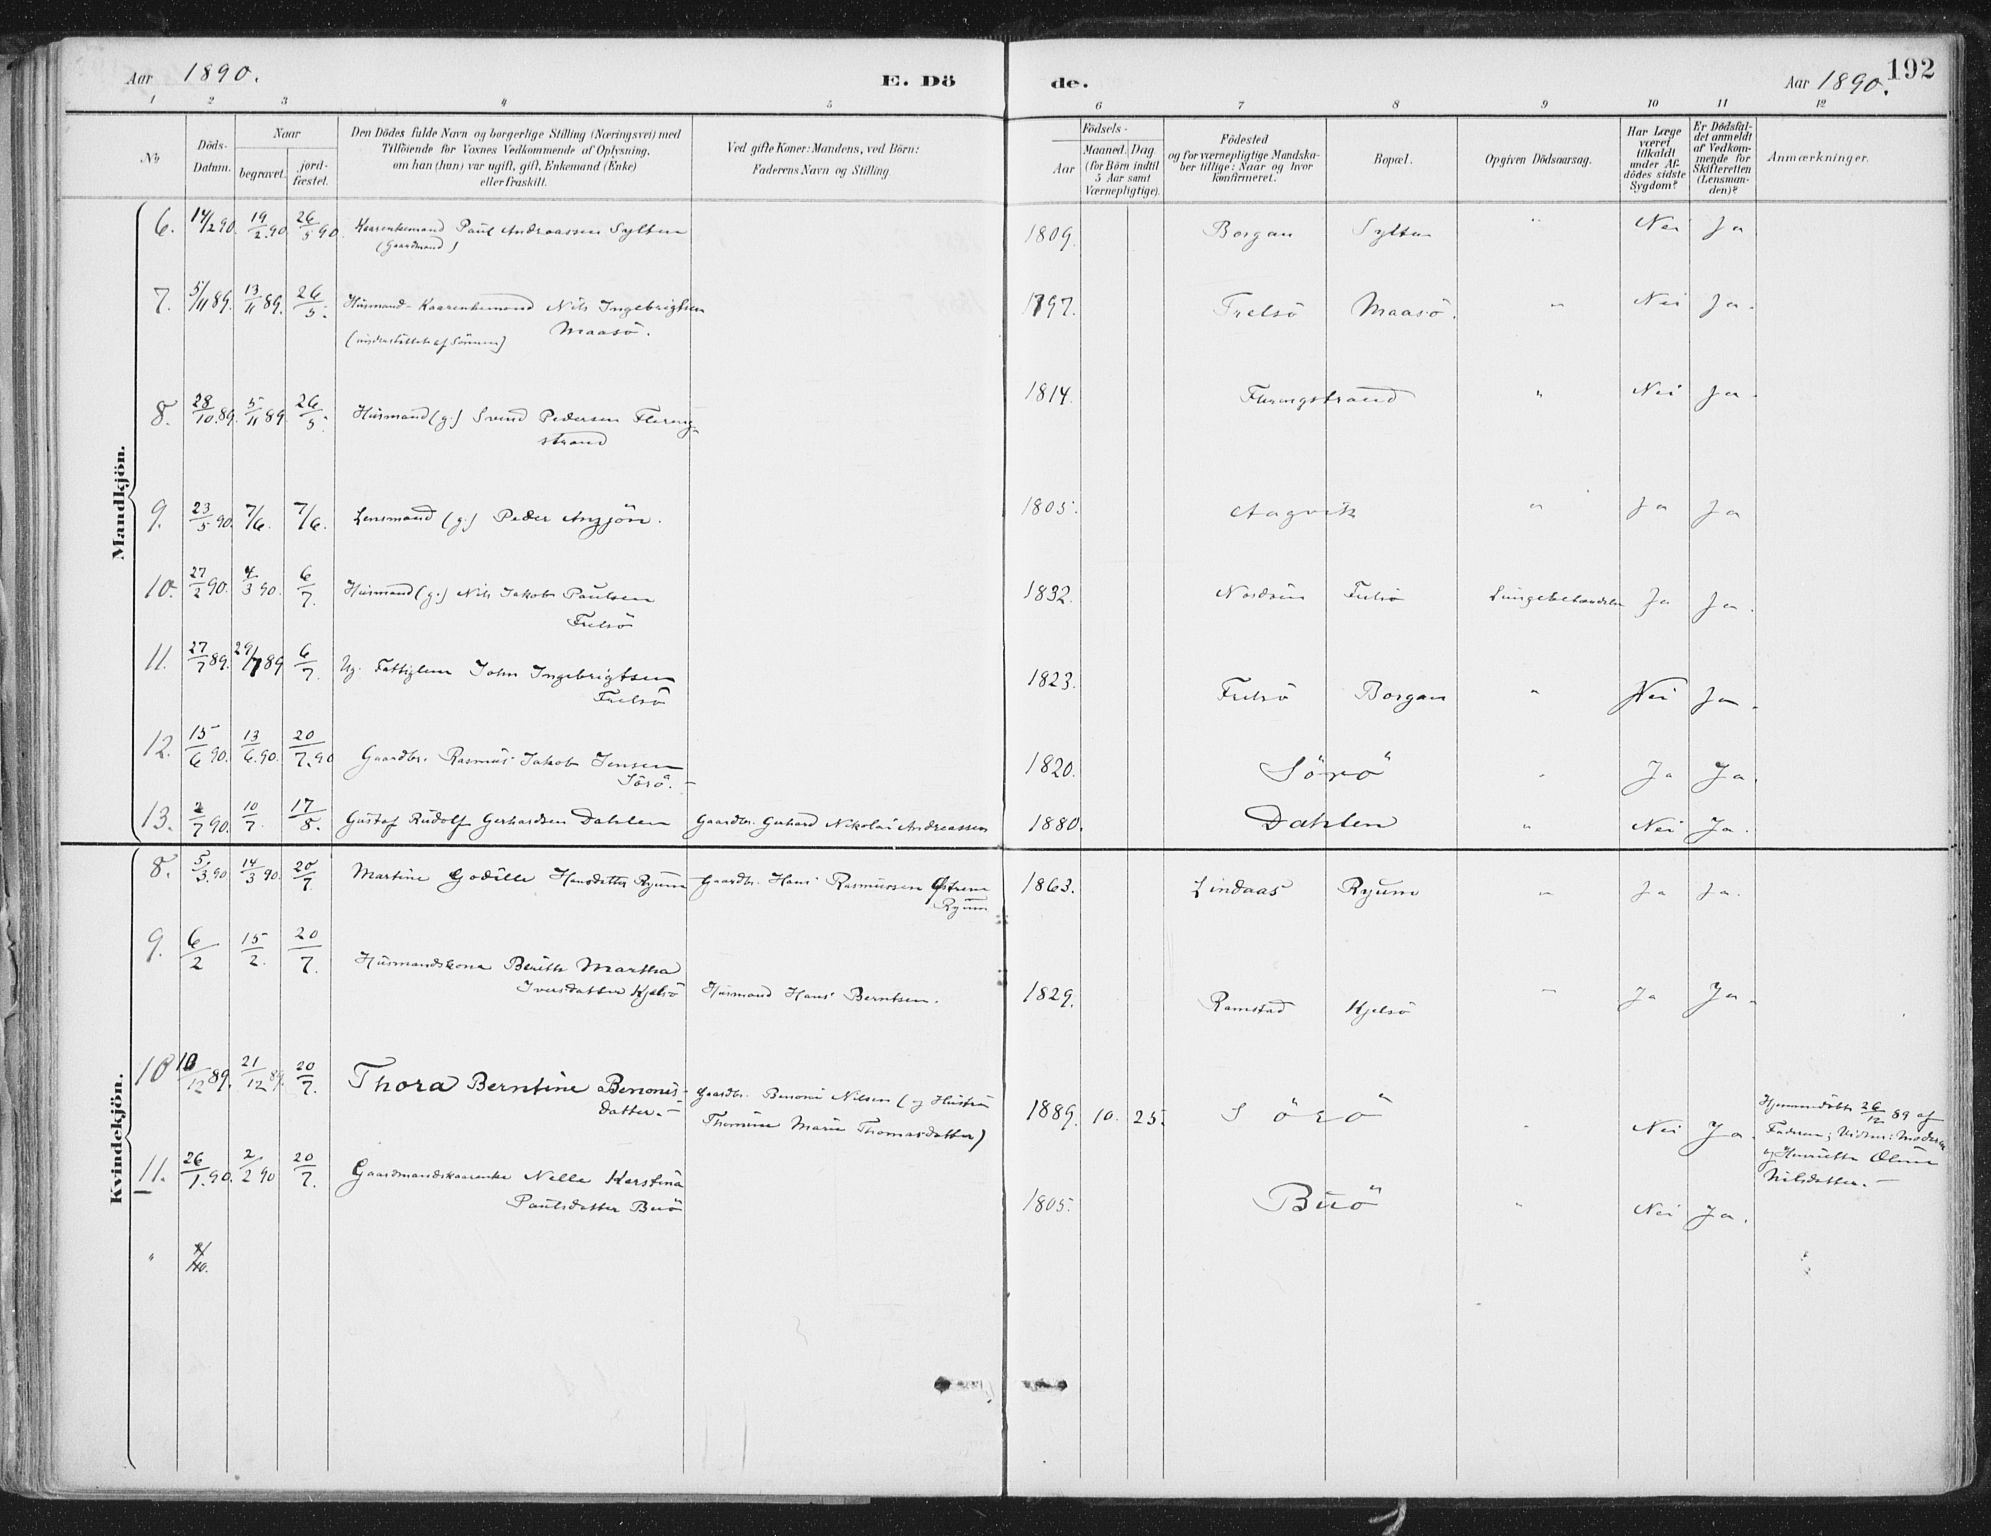 Aar 1890.
E. Dö
de.
Aar 1890.
192
1 2 3 4 5 6 7 8 9 10 11 12
No
Döds-Datum.
Naar
begravet.
jord-fæstet.
Den Dödes fulde Navn og borgerlige Stilling (Næringsvei) med
Tilföiende for Voxnes Vedkommende af Oplysning,
om han (hun) var ugift, gift, Enkemand (Enke)
eller fraskilt.
Ved gifte Koner: Mandens, ved Börn:
Faderens Navn og Stilling.
Födsels-
Aar
Maaned. Dag
(for Börn indtil
5 Aar samt
Værnepligtige).
Födested
og for værnepligtige Mandska-
ber tillige: Naar og hvor
konfirmeret.
Bopæl.
Opgiven Dödsaarsag.
Har Læge
været
tilkaldt
under Af-
dödes sidste
Sygdom?
Er Dödsfal-
det anmeldt
af Vedkom-
mende for
Skifteretten
(Lensman-
den)?
Anmærkninger.
Mandkjön.
6. 14/2 90. 19/2 90. 26/5 90. Kaarenkemand Paul Andreassen Sylten 1809. Borgan Sylten " Nei Ja
(Gaardmand)
7. 5/11 89. 13/11 89. 26/5. Husmand-Kaarenkemand Nils Ingebrigtsen 1797. Frelsö Maasö. " Nei Ja.
Maasö.
(understöttet af Sönnen)
8. 28/10 89. 5/11 89. 26/5. Husmand (g.) Svend Pedersen Flereng- 1814. Flerengstrand " Nei Ja.
strand
9. 23/5 90. 7/6. 7/6. Lensmand (g.) Peder Anzjön. 1805. Aagvik " Ja Ja
10. 27/2 90. 4/3 90. 6/7. Husmand (g.) Nils Jakob Paulsen 1832. Nordsen Frelsö Lungebetændelse Ja Ja.
Frelsö
11. 27/7 89. 29/7 89 6/7. Ug. Fattiglem John Ingebrigtsen 1823. Frelsö Borgan " Nei Ja.
Frelsö
12. 15/6 90. 13/6 90. 20/7. 90 Gaardbr. Rasmus Jakob Jensen 1820. Sörö " Ja Ja.
Sörö.-
13. 2/7 90. 10/7. 17/8. Gustaf Rudolf Gerhardsen Dahlen Gaardbr. Gerhard Nikolai Andreassen 1880. Dahlen " Nei Ja.
Kvindekjön.
8. 5/3. 90. 14/3 90. 20/7 Martine Godille Hansdatter Ryum Gaardbr. Hans Rasmussen Østrem 1863. Lindaas Ryum " Ja Ja.
Ryum
9. 6/2 15/2. 20/7. Husmandskona Berith Martha
Iversdatter Kjelsö Husmand Hans Berntsen. 1829. Ramstad Kjelsö " Ja Ja.
10 10/12 89. 21/12 89. 20/7. Thora Berntine Benonis-
datter.- Gaardbr. Benoni Nilsen (og Hustru
Thomine Marie Thomasdatter) 1889. 10. 25. Sörö " Nei Ja.
Hjemmedöbt 26/12 89 af
Faderen; Vidner: Moderen
og Henriette Oline
Nilsdatter.-
11. 26/1. 90. 2/2 90 20/7. Gaardmandskaarenke Nelle Kerstina
Paulsdatter Buö 1805. Buö " Nei Ja.
"